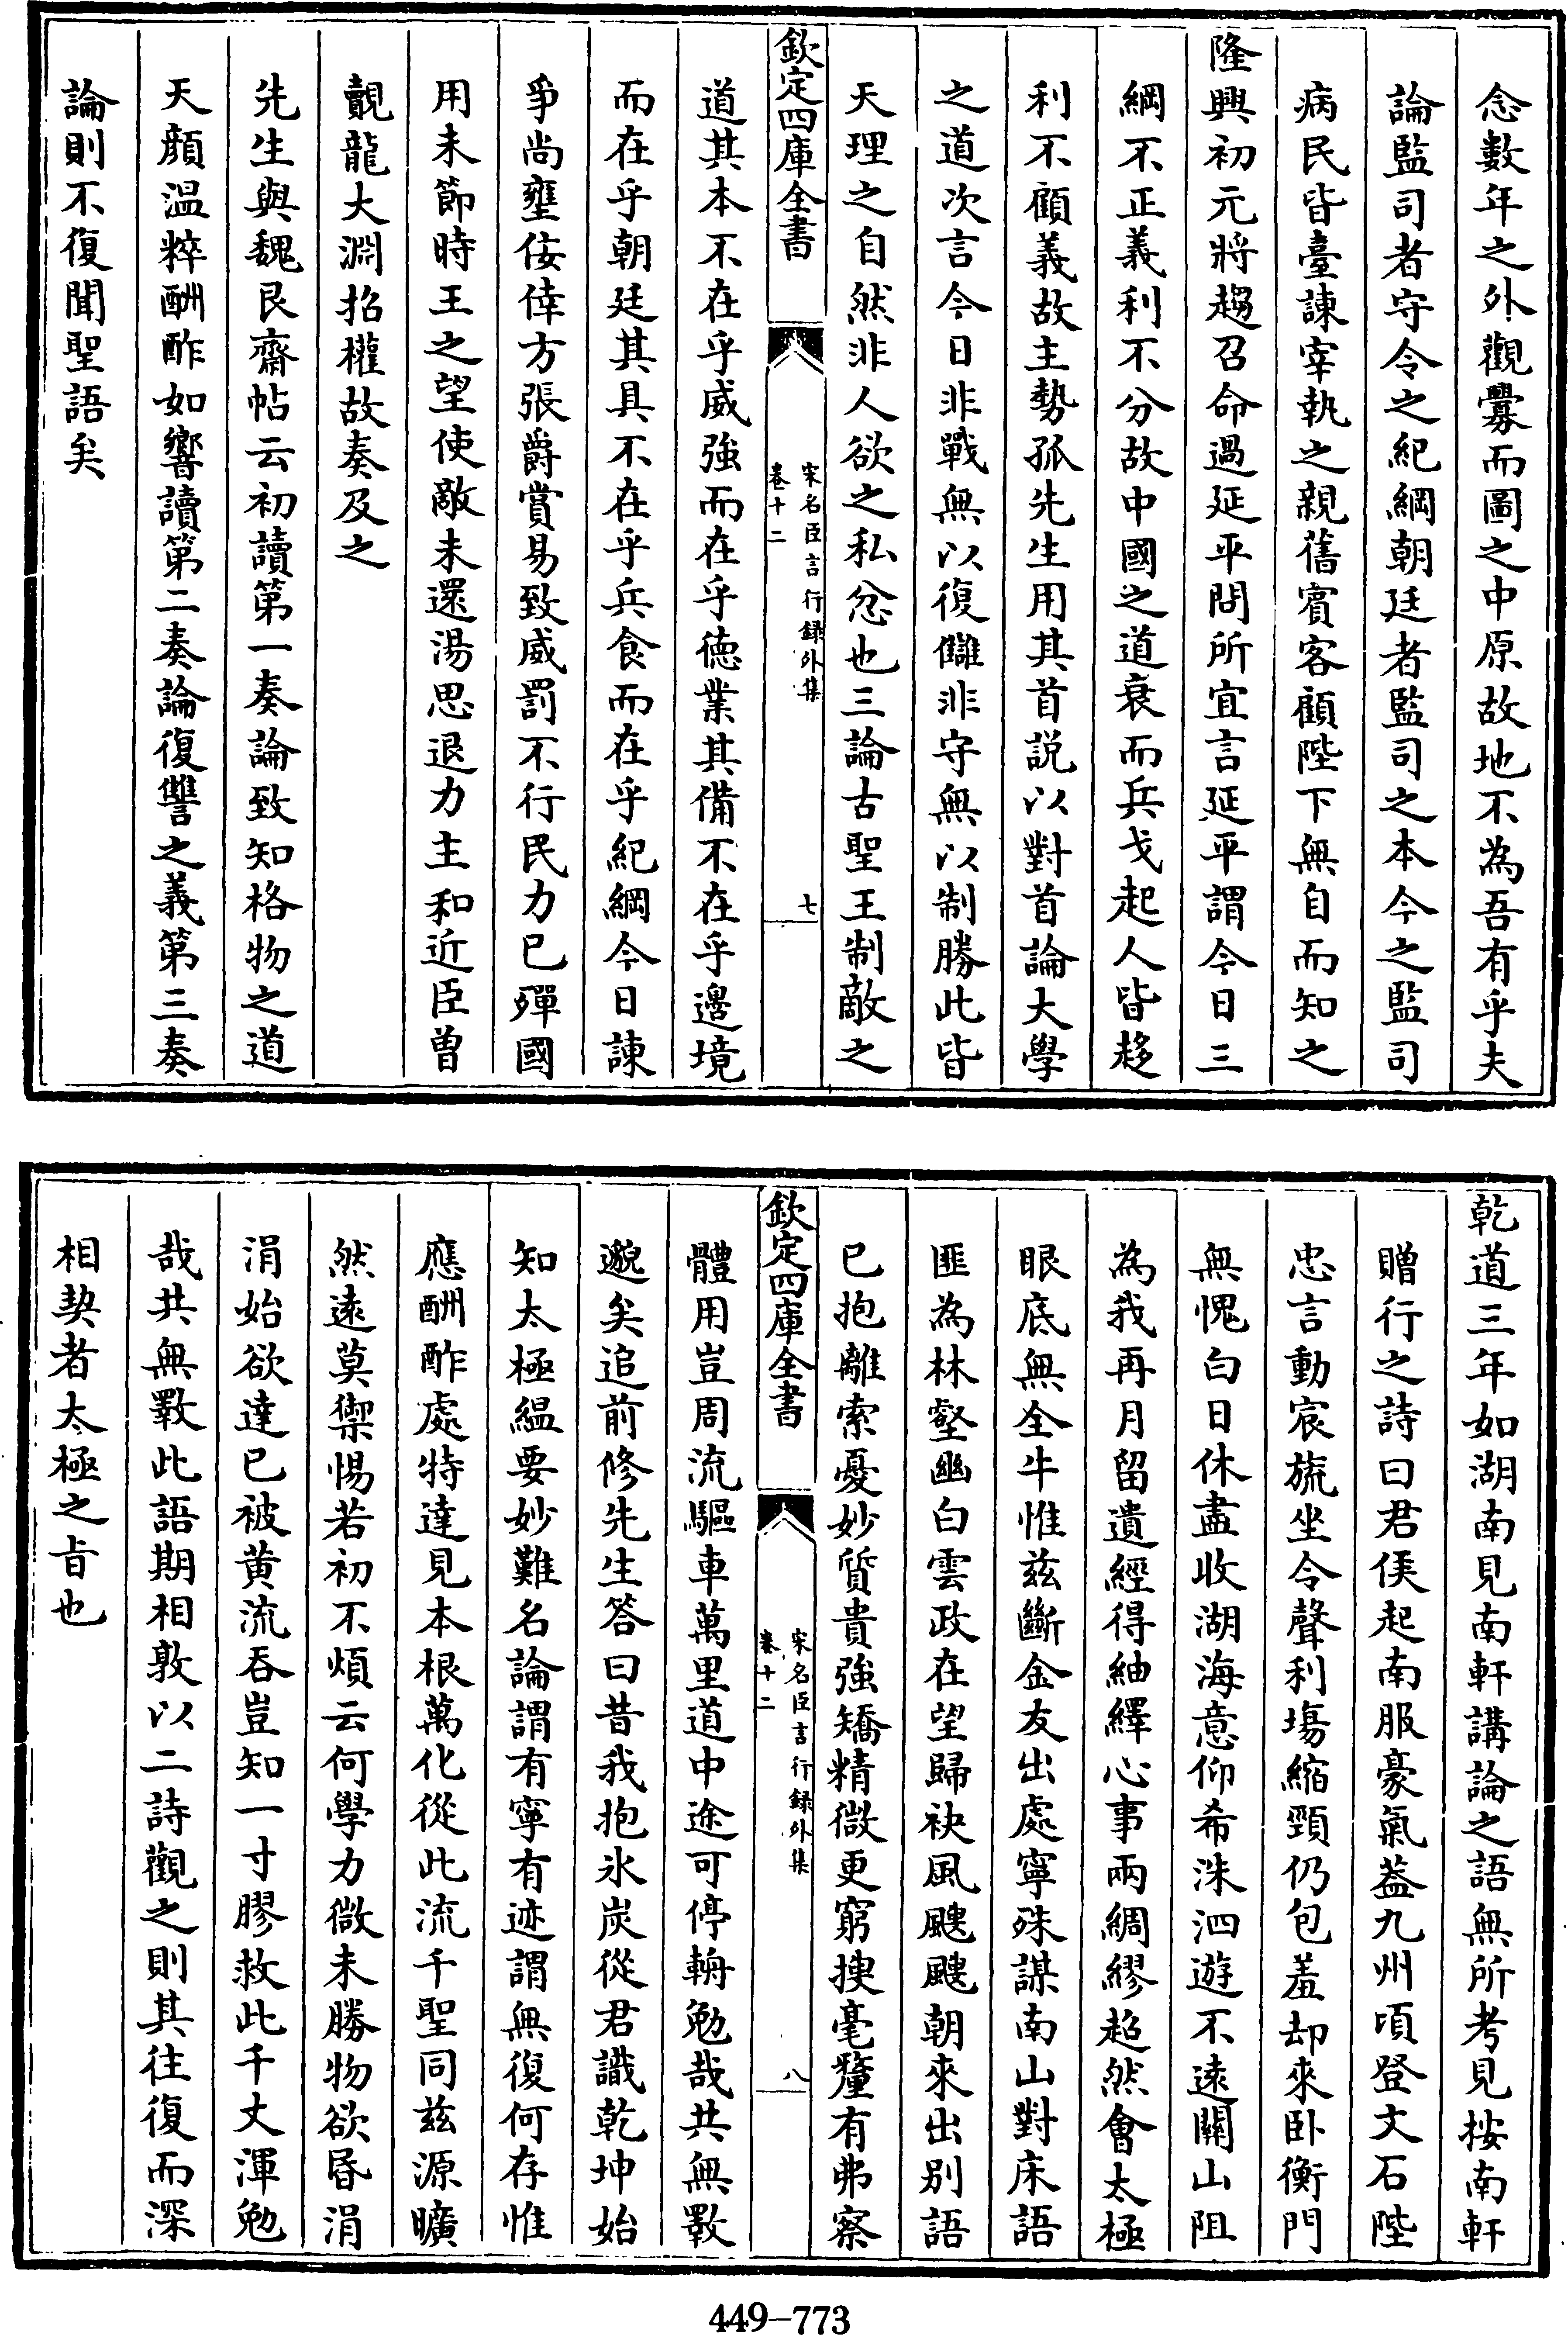 念數年之外觀釁而圖之中原故地不為吾有乎夫
論監司者守令之紀綱朝廷者監司之本今之監司
病民皆臺諫宰執之親舊賓客顧陛下無自而知之
隆興初元將趨召命過延平問所宜言延平謂今日三
綱不正義利不分故中國之道衰而兵戈起人皆趍
利不顧義故主勢孤先生用其首説以對首論大學
之道次言今日非戰無以復讎非守無以制勝此皆
天理之自然非人欲之私忿也三論古聖王制敵之
欽定四庫全書
宋名臣言行録外集
卷十二
七
道其本不在乎威強而在乎徳業其備不在乎邊境
而在乎朝廷其具不在乎兵食而在乎紀綱今日諫
爭尚壅佞倖方張爵賞易致威罰不行民力已殫國
用未節時王之望使敵未還湯思退力主和近臣曽
覿龍大淵招權故奏及之
先生與魏艮齋帖云初讀第一奏論致知格物之道
天顔温粹酬酢如響讀第二奏論復讐之義第三奏
論則不復聞聖語矣
乾道三年如湖南見南軒講論之語無所考見按南軒
贈行之詩曰君侯起南服豪氣葢九州頃登文石陛
忠言動宸旒坐令聲利塲縮頸仍包羞却來卧衡門
無愧白日休盡收湖海意仰希洙泗遊不逺關山阻
為我再月留遺經得紬繹心事兩綢繆超然㑹太極
眼底無全牛惟兹斷金友出處寧殊謀南山對床語
匪為林壑幽白雲政在望歸袂風颼颼朝來出別語
已抱離索憂妙質貴強矯精微更窮搜毫釐有弗察
欽定四庫全書
宋名臣言行録外集
卷十二
八
體用豈周流驅車萬里道中途可停輈勉哉共無斁
邈矣追前修先生答曰昔我抱氷炭從君識乾坤始
知太極緼要妙難名論謂有寧有迹謂無復何存惟
應酬酢處特達見本根萬化從此流千聖同兹源曠
然逺莫禦惕若初不煩云何學力微未勝物欲昏涓
涓始欲達已被黄流吞豈知一寸膠救此千丈渾勉
哉共無斁此語期相敦以二詩觀之則其往復而深
相契者太極之旨也
449-773